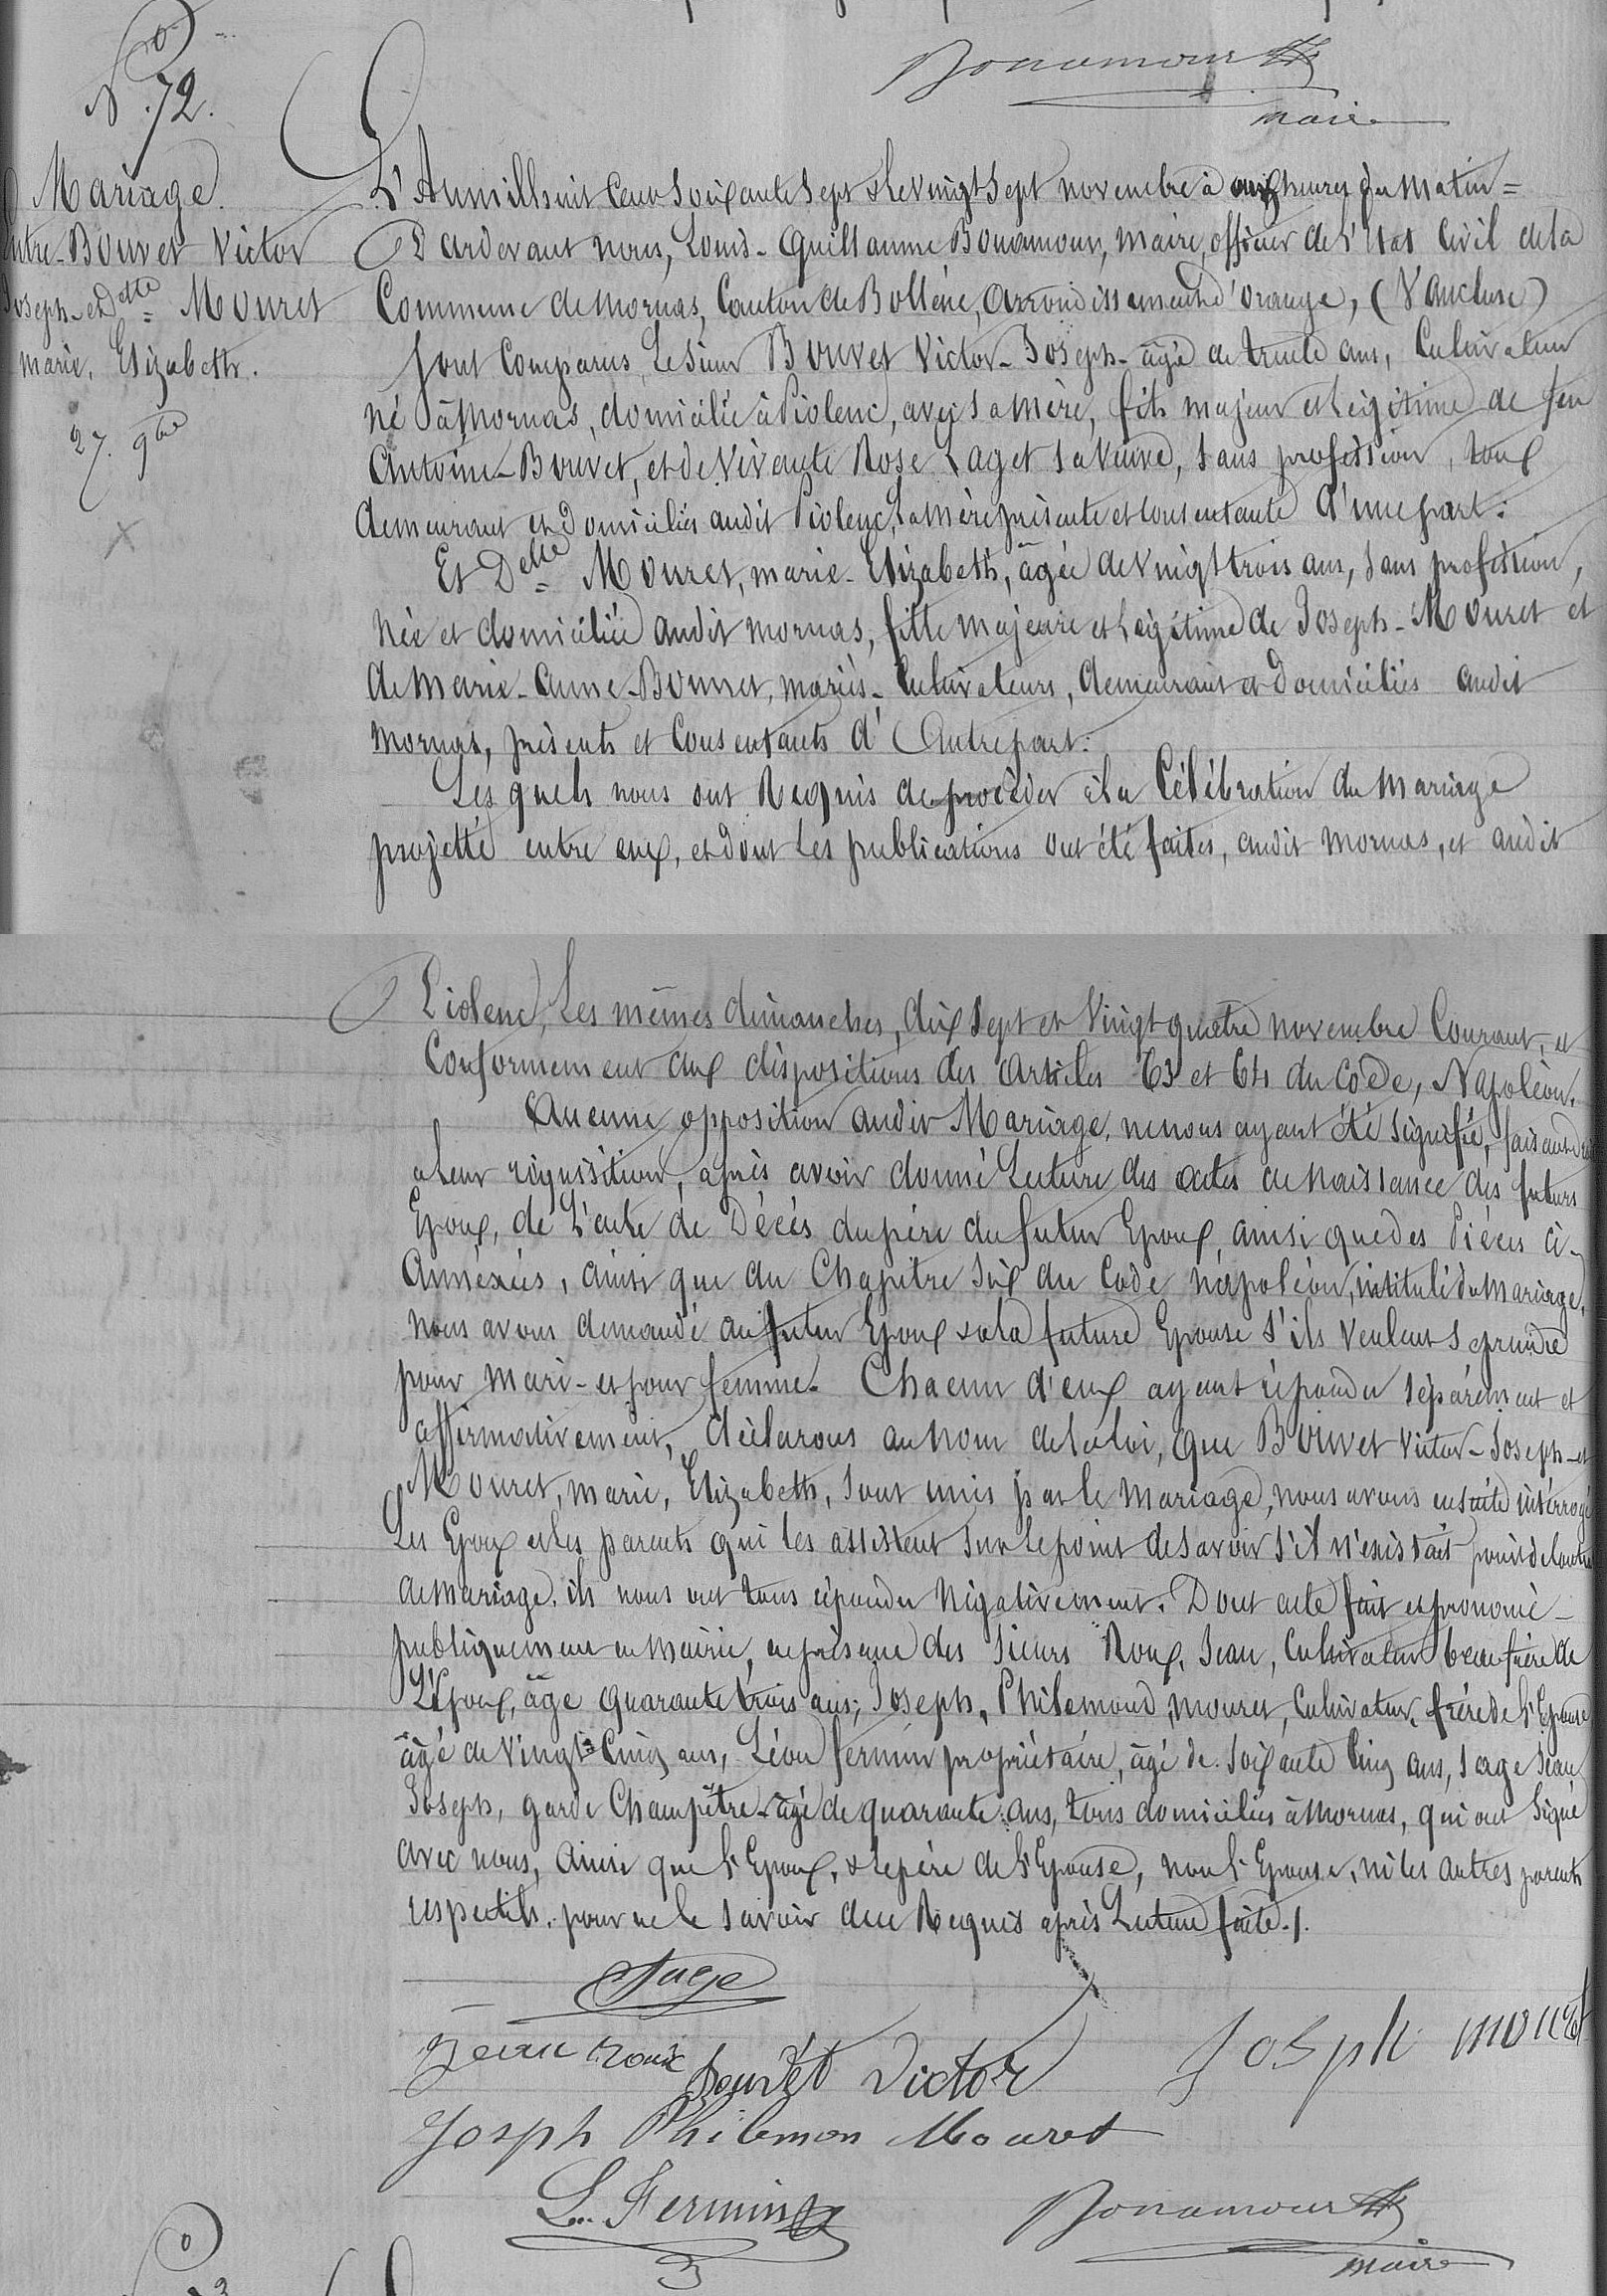 Bonamour
maire
N° 72.
Mariage
entre Bouvet Victor
Joseph et Delle Mouret
marie, Elizabeth.
27. 9bre
L'An mil huit cent soixante sept & le vingt sept novembre à onze heures du matin =
Pardevant nous, Louis-Guillaume Bonamour, maire, officier de l'Etat Civil de la
Commune de Mornas, Canton de Bollène, arrondissement d'orange, (Vaucluse)
sont comparus, Le Sieur Bouvet Victor-Joseph- âgé de trente ans, Cultivateur
né à Mornas, domicilié à Piolenc, avec sa mère, fils majeur et Légitime de feu
Antoine-Bouvet, et de Vivante Rose Laget sa Veuve, sans profession, tous
demeurant et domiciliés audit Piolenc, La mère présente et consentante d'une part:
Et Delle Mouret, marie-Elizabeth, âgée de vingt trois ans, sans profession,
née et domiciliée audit mornas, fille majeure et Légitime de Joseph-Mouret et
de Marie-Anne-Bonnet, mariés-Cultivateurs, demeurant et domiciliés audit
mornas, présents et Consentants d'Autre part:
Les quels nous ont Requis de procéder à la Célébration du Mariage
projetté entre eux, et dont Les publications ont été faites, audit Mornas, et audit
Piolenc, Les mêmes dimanches, dix sept et Vingt quatre novembre Courant, et
Conformement aux dispositions des Articles 63 et 64 du Code, Napoléon.
Aucune opposition audit Mariage, ne nous ayant été signifié, faisant droit
a leur réquisition, après avoir donné Lecture des actes de naissance des futurs
Epoux, de L'acte de Décès du père du futur Epoux, ainsi que des Pièces ci-
Annéxées, ainsi que du Chapitre Six du Code napoléon, intitulé du Mariage,
nous avons demandé au futur Epoux & a la future Epouse s'ils veulent se prendre
pour mari-et pour femme. Chacun d'eux ayant répondu séparément et
affirmativement, déclarons au nom de la loi, que Bouvet Victor-Joseph-et
Mouret, marie, Elizabeth, sont unis par le mariage, nous avons ensuite intérrogé
Les Epoux et les parents qui les assistent sur le point de savoir s'il n'existait point de Contrat
de mariage, ils nous ont tous répondu Négativement. Dont acte fait et prononcé-
publiquement en Mairie, en présence des Sieurs Roux, Jean, Cultivateur beau frère de
L'Epoux, âgé quarante trois ans; Joseph, Philemond, mouret, Cultivateur, frère de l'Epouse
âgé de Vingt-Cinq ans, Léon fermin propriétaire, âgé de soixante Cinq ans, Sage Jean
Joseph, garde Champêtre-âgé de quarante ans, tous domiciliés à Mornas, qui ont Signé
avec nous, Ainsi que l'Epoux, & le père de l'Epouse, non l'Epouse, ni les autres parents
respectifs, pour ne le savoir de ce Requis après Lecture faite./.
Sage
Jean Roux
bouvet Victor
Joseph mouret
Joseph Philemon Mouret
L. Fermin
Bonamour
maire